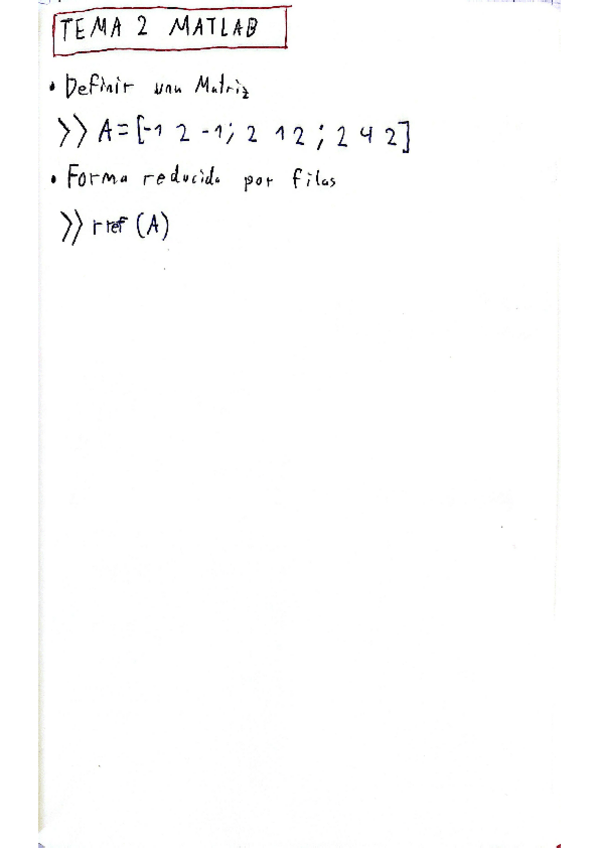 TEMA 2 MATLAB
• Definir una Matriz
>> A=[-1 2 -1; 2 1 2 ; 2 4 2]
• Forma reducida por filas
>> rref (A)